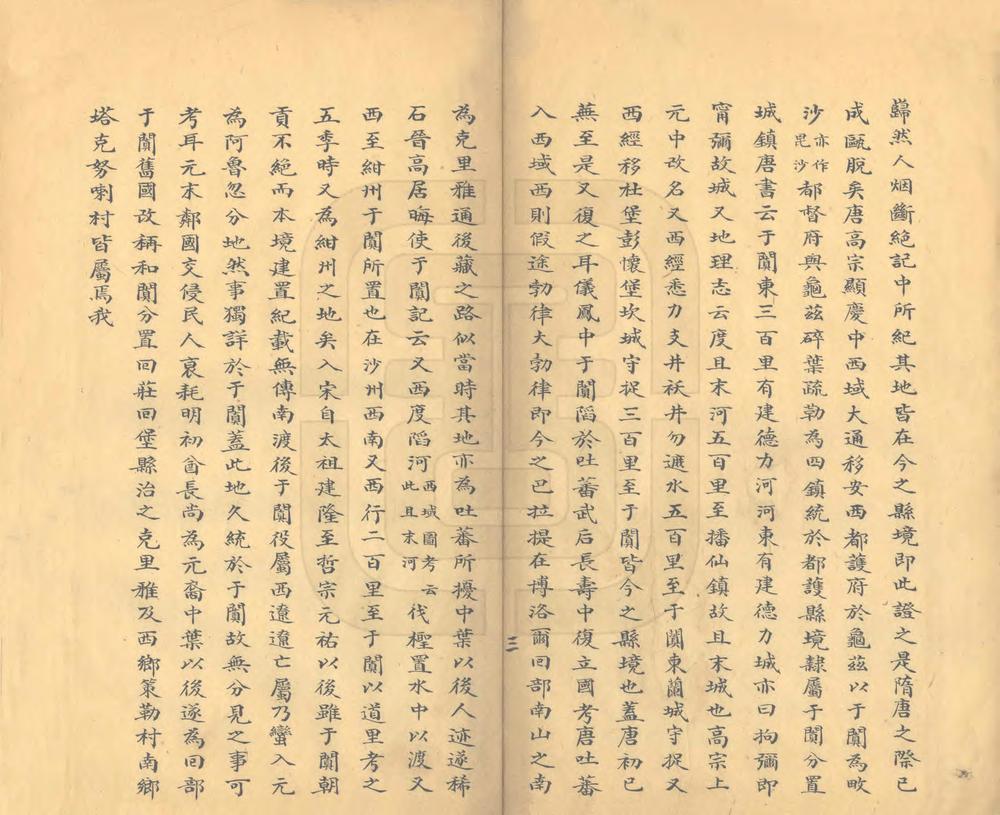 巋然人烟斷絕記中所紀其地皆在今之縣境即此證之是隋唐之際已
成甌脫矣唐高宗顯慶中西域大通移安西都護府於龜茲以于闐為畋
沙亦作毘沙都督府與龜茲碎葉疏勒為四鎮統於都護縣境隸屬于闐分置
城鎮唐書云于闐東三百里有建德力河河東有建德力城亦曰拘彌即
甯彌故城又地理志云度且末河五百里至播仙鎮故且末城也高宗上
元中改名又西經悉力支井祆井勿遮水五百里至于闐東蘭城守捉又
西經移杜堡彭懷堡坎城守捉三百里至于闐皆今之縣境也蓋唐初已
蕪至是又復之耳儀鳳中于闐䧟於吐蕃武后長壽中復立國考唐吐蕃
入西域西則假途勃律大勃律即今之巴拉提在博洛爾回部南山之南
三
為克里雅通後藏之路似當時其地亦為吐蕃所擾中葉以後人迹遂稀
石晉高居晦使于闐記云又西度䧟河西域圖考云此且末河伐檉置水中以渡又
西至紺州于闐所置也在沙州西南又西行二百里至于闐以道里考之
五季時又為紺州之地矣入宋自太祖建隆至哲宗元祐以後雖于闐朝
貢不絕而本境建置紀載無傳南渡後于闐役屬西遼遼亡屬乃蠻入元
為阿魯忽分地然事獨詳於于闐蓋此地久統於于闐故無分見之事可
考耳元末鄰國交侵民人裒耗明初酋長尚為元裔中葉以後遂為回部
于闐舊國改稱和闐分置回莊回堡縣治之克里雅及西鄉策勒村南鄉
塔克努喇村皆屬焉我